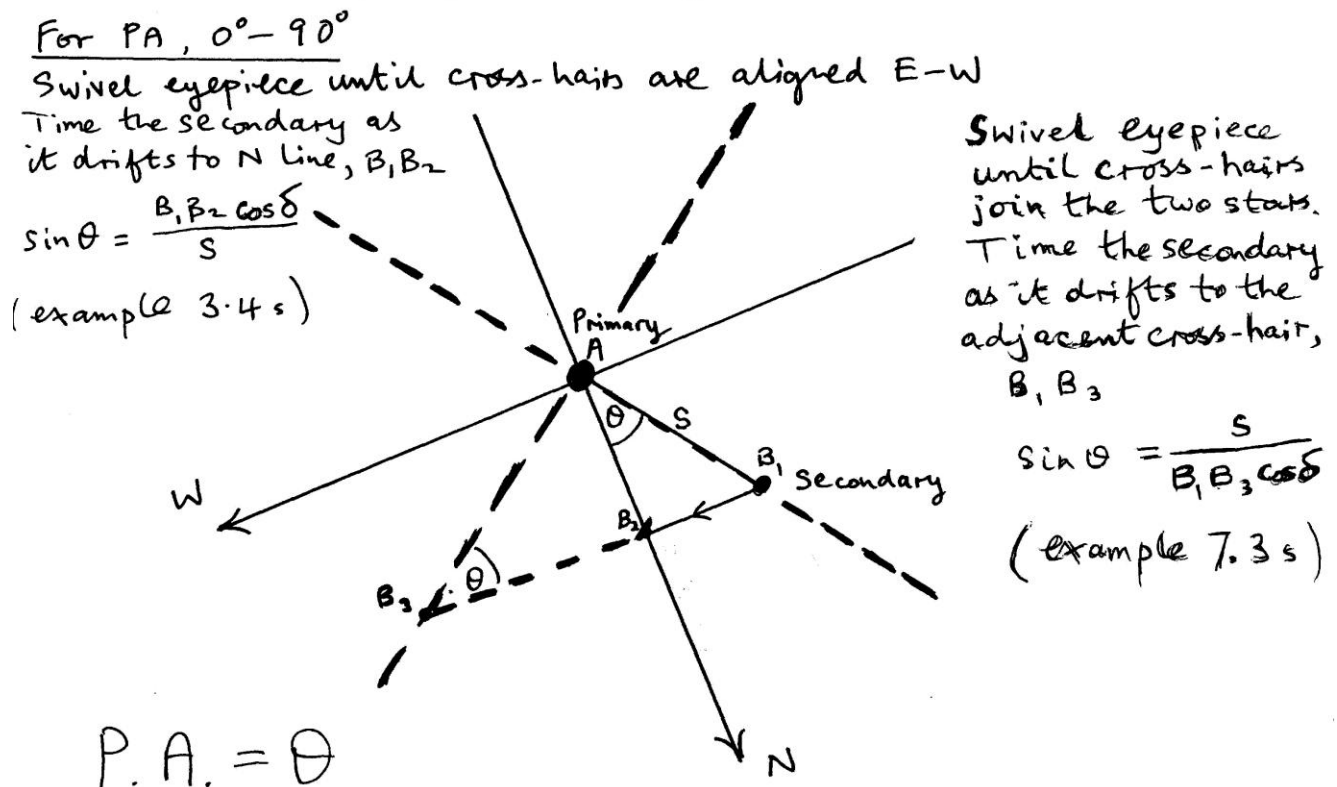 For PA, 0°-90°
Swivel eyepiece until cross-hairs are aligned E-W
Time the secondary as
it drifts to N line, B₁B₂
sin θ = B₁B₂ cos δ / S
(example 3.4 s)
Swivel eyepiece
until cross-hairs
join the two stars.
Time the secondary
as it drifts to the
adjacent cross-hair,
B₁ B₃
sin θ = S / B₁B₃ cos δ
(example 7.3 s)
Primary
A
θ
S
B₁
Secondary
W
B₂
B₃
θ
N
P.A. = θ